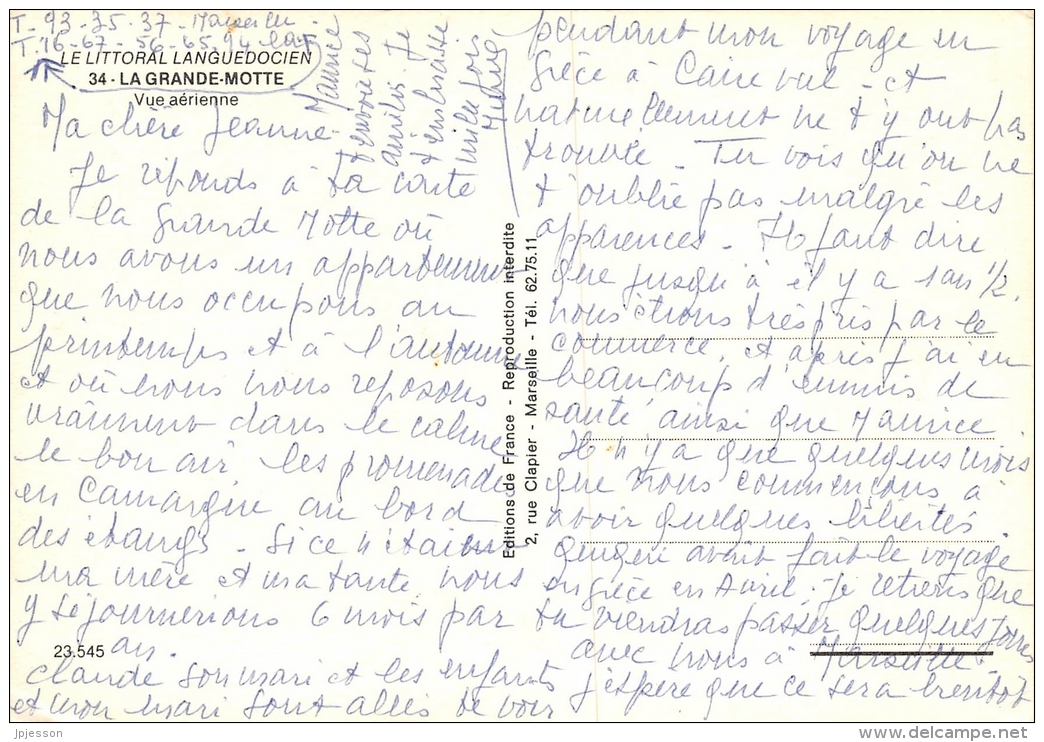 T. 93-75-37- Marseille -
T. 16-67-56-65.94
LE LITTORAL LANGUEDOCIEN
34 - LA GRANDE-MOTTE
Vue aérienne
Ma chère Jeanne
Je réponds à ta carte
de la Grande Motte où
nous avons un appartement
que nous occupons au
printemps et à l'automne
et où nous nous reposons
vraiment dans le calme
le bon air les promenades
en Camargue au bord
des étangs - Si ce n'était
ma mère et ma tante, nous
y séjournerions 6 mois par
an.
23.545
Claude son mari et les enfants
et mon mari sont allés te voir
pendant mon voyage en
Grèce à Caire val - et
naturellement ne t'y ont pas
trouvée - Tu vois qu'on ne
t'oublie pas malgré les
apparences - Il faut dire
que jusqu'à il y a 1 an 1/2,
nous étions très pris par le
commerce, et après j'ai eu
beaucoup d'ennuis de
santé ainsi que Maurice
Il n'y a que quelques mois
que nous commençons à
avoir quelques libertés
avait fait le voyage
en Grèce en Avril - Je retiens que
tu viendras passer quelques jours
avec nous à Marseille
j'espère que ce sera bientôt
Maurice
t'envoie ses
amitiés Je
t'embrasse
mille fois
Editions de France - Reproduction interdite
2, rue Clapier - Marseille - Tél. 62.75.11
jpjesson
www.delcampe.net